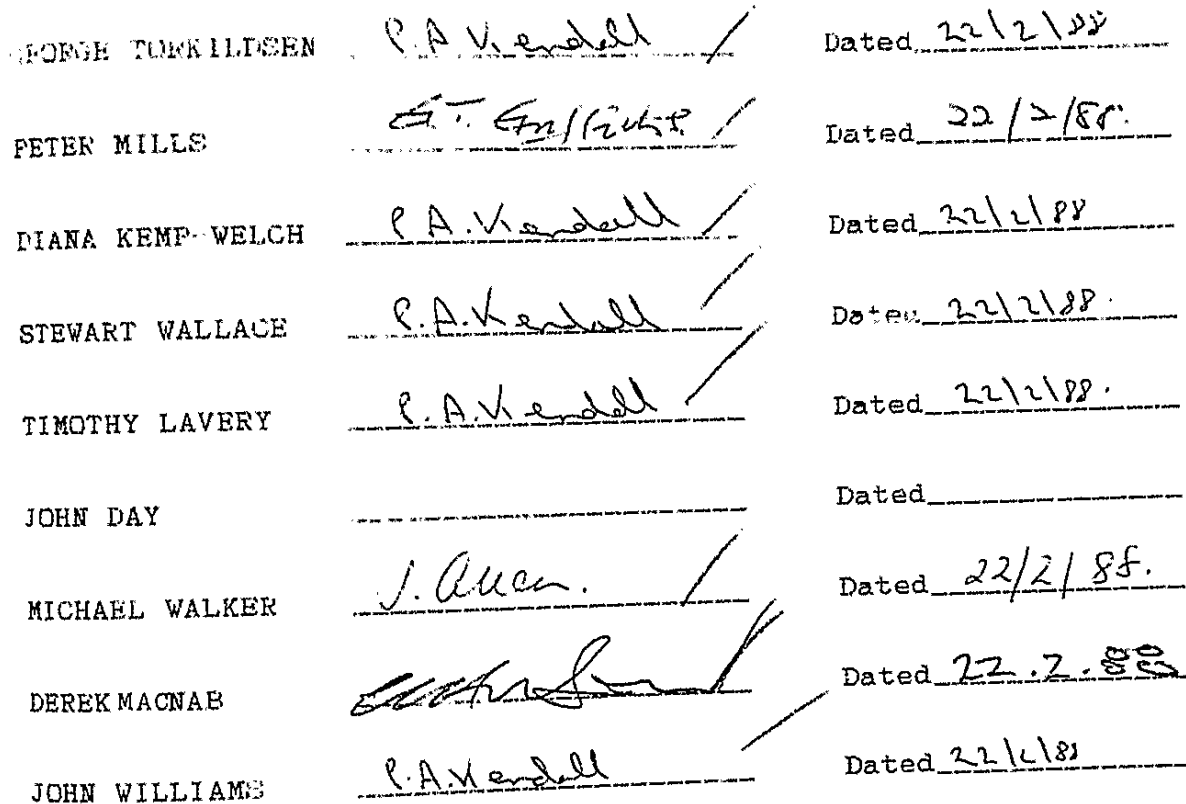 GEORGE TORKILDSEN P.A. Kendall / Dated 22/2/88
PETER MILLS G.T. Griffiths / Dated 22/2/88.
DIANA KEMP-WELCH P.A. Kendall / Dated 22/2/88
STEWART WALLACE P.A. Kendall / Dated 22/2/88.
TIMOTHY LAVERY P.A. Kendall / Dated 22/2/88.
JOHN DAY Dated
MICHAEL WALKER J. Allen. / Dated 22/2/88.
DEREK MACNAB / Dated 22.2.88
JOHN WILLIAMS P.A. Kendall / Dated 22/2/88